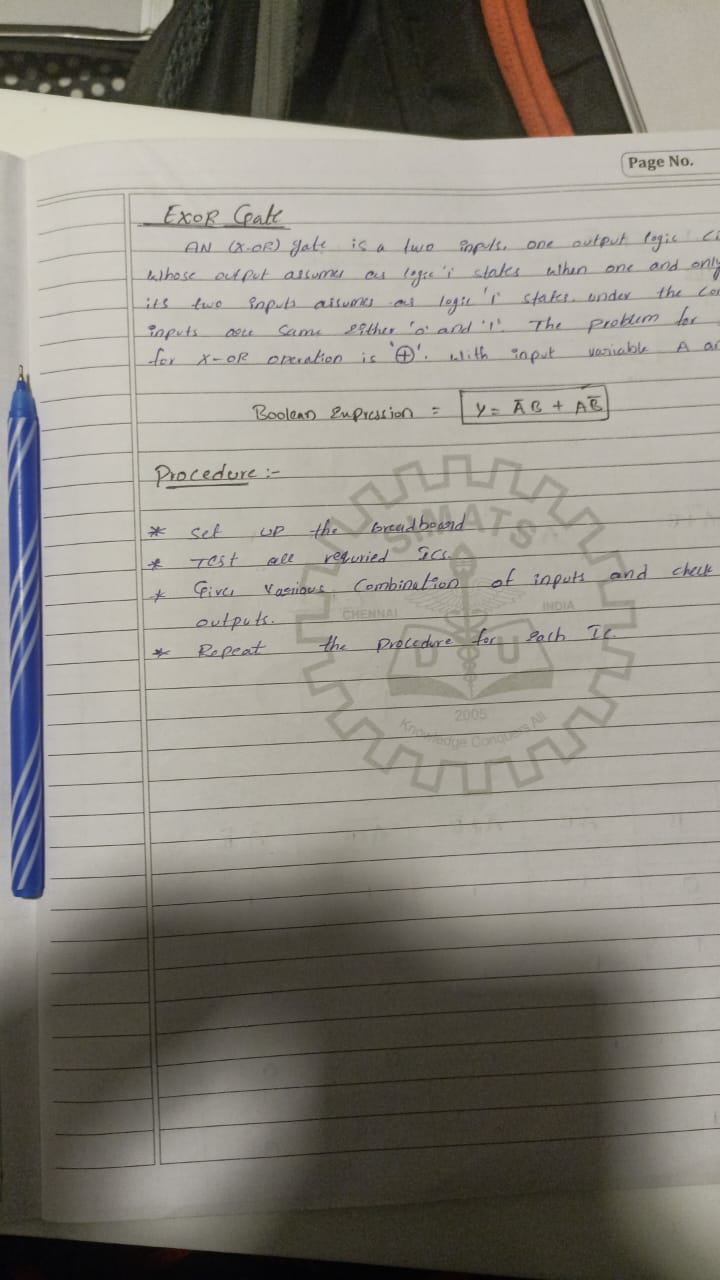 Page No.
EXOR Gate
AN (X-OR) gate is a two inputs. one output logic
whose output assumes as logic '1' states when one and only
its two inputs assumes as logic '1' states. under the
inputs are same either 'o' and '1'. The problem for
for X-OR operation is '⊕'. with input variable A
Boolean Expression = Y = A̅B + AB̅
Procedure :-
* Set up the breadboard
* Test all requried ICs.
* Give Various Combination of inputs and check
outputs.
* Repeat the procedure for each IC.
SIMATS
CHENNAI
INDIA
2005
Knowledge Conquers All